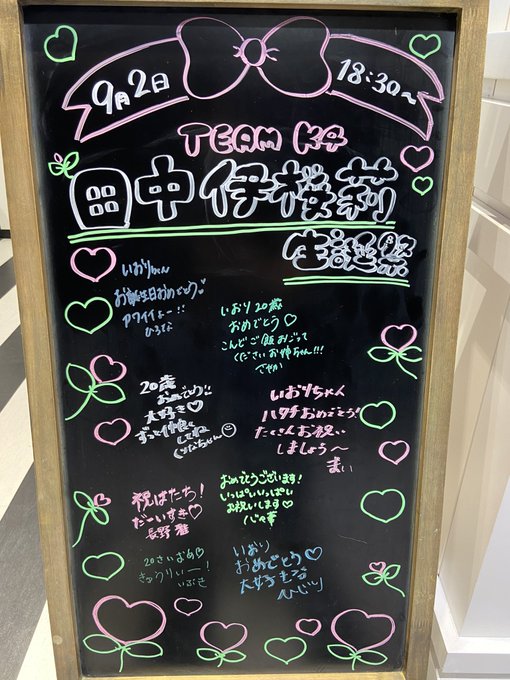 9月2日
18:30〜
TEAM K4
田中伊桜莉
生誕祭
いおりちゃん
お誕生日おめでとう
アワイイよー!!
ひろな
いおり20歳
おめでとう♡
こんどご飯おごって
くださいお姉ちゃん!!!
さやか
20歳
おめでとう!!
大好き♡
ずっと仲良く
してね
いおりちゃん
ハタチおめでとう!
たくさんお祝い
しましょう〜
まい
祝はたち!
だーいすき♡
長野雅
おめでとうございます!
いっぱいいっぱい
お祝いします♡
20さいおめ♡
きゅうりぃー!
いぶき
いおり
おめでとう♡
大好きだ